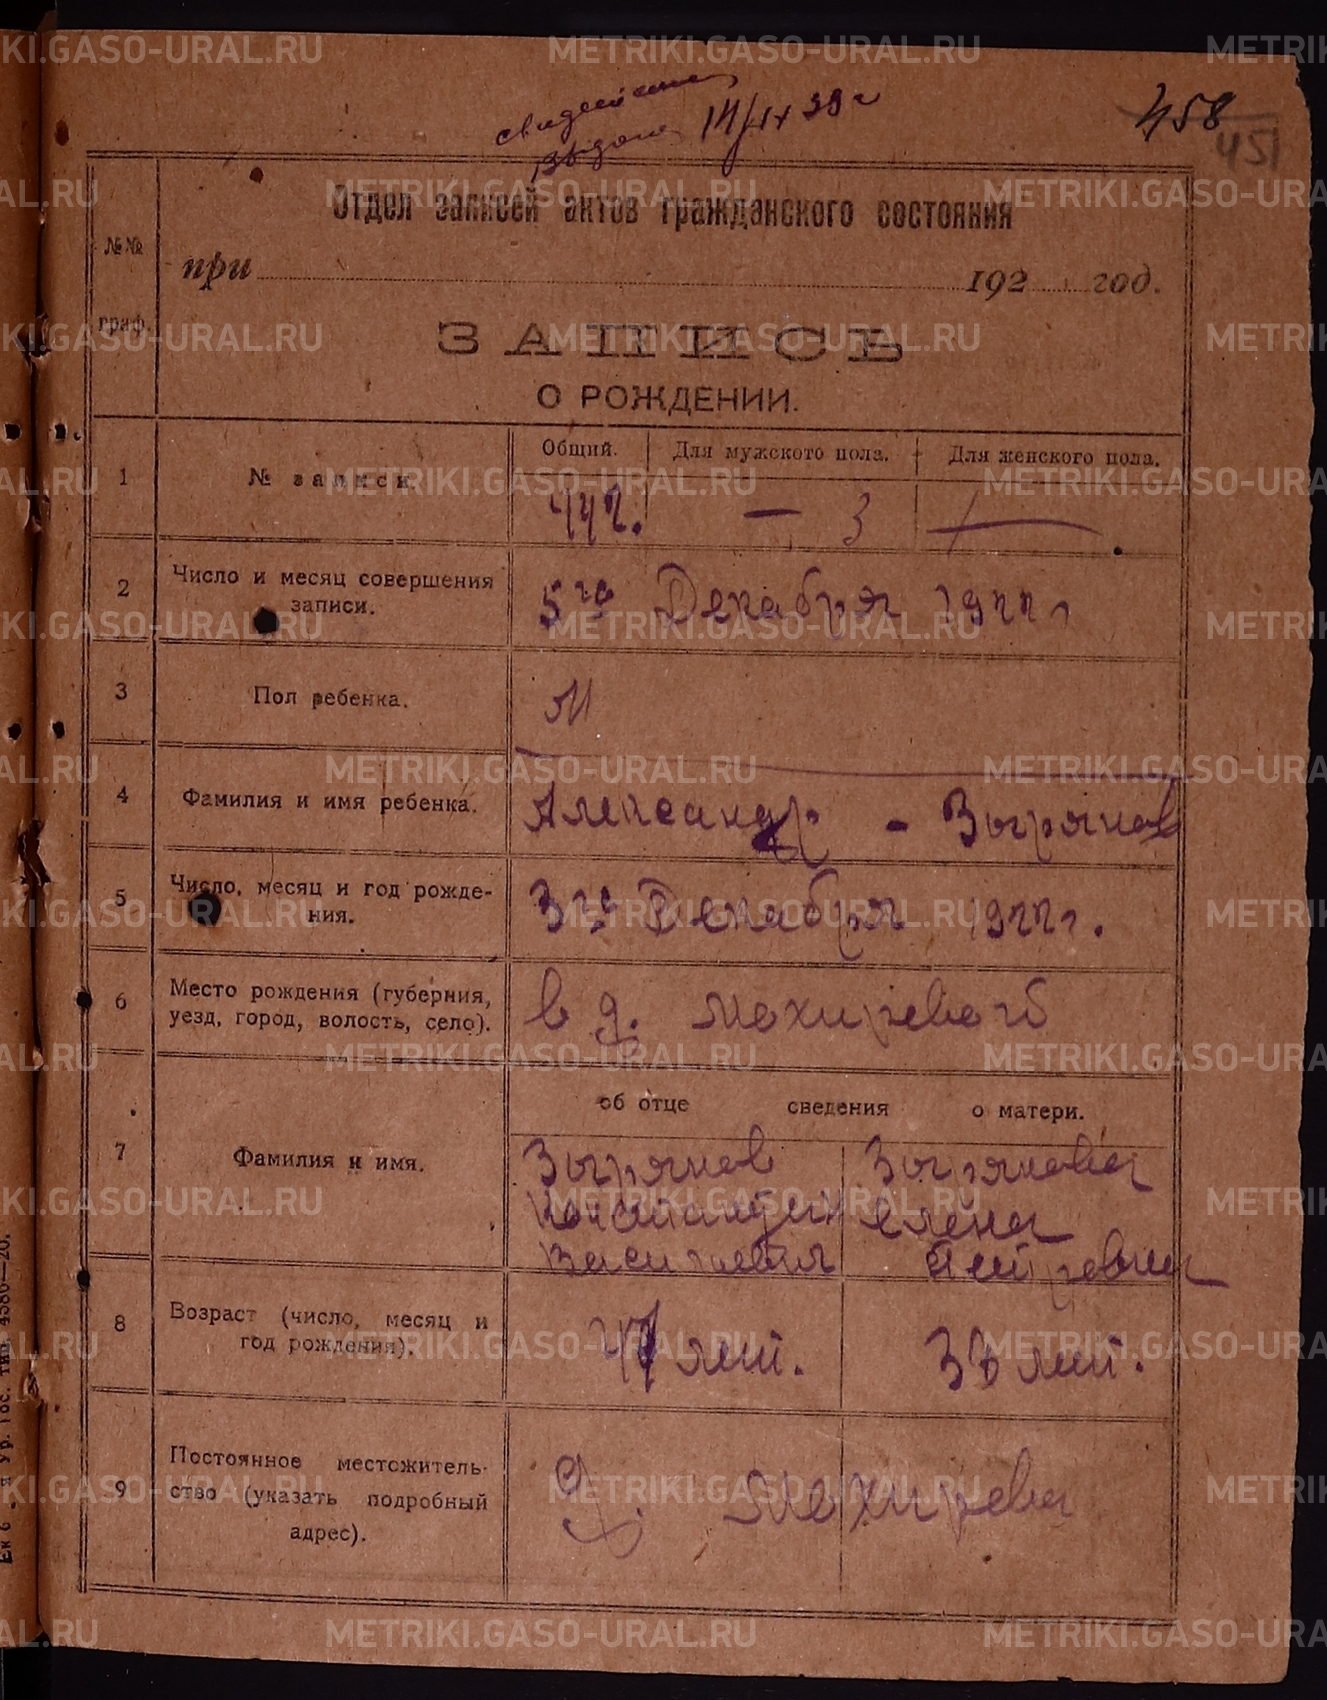 METRIKI.GASO-URAL.RU
выдано 14/IX 39 г
458
451
Отдел записей актов гражданского состояния
при 192 год.
№№ граф.
ЗАПИСЬ
О РОЖДЕНИИ.
Общий. Для мужского пола. Для женского пола.
1 № записи. — 3
2 Число и месяц совершения
записи.
5го Декабря 1922 г
3 Пол ребенка. М
4 Фамилия и имя ребенка. Александр - Зырянов
5 Число, месяц и год рожде-
ния.
3го Декабря 1922 г.
6 Место рождения (губерния,
уезд, город, волость, село).
в д.
об отце сведения о матери.
7 Фамилия и имя.
Зырянов Зырянова
Константин Елена
8 Возраст (число, месяц и
год рождения).
лет. лет.
9 Постоянное местожитель-
ство (указать подробный
адрес).
д. Мохирева